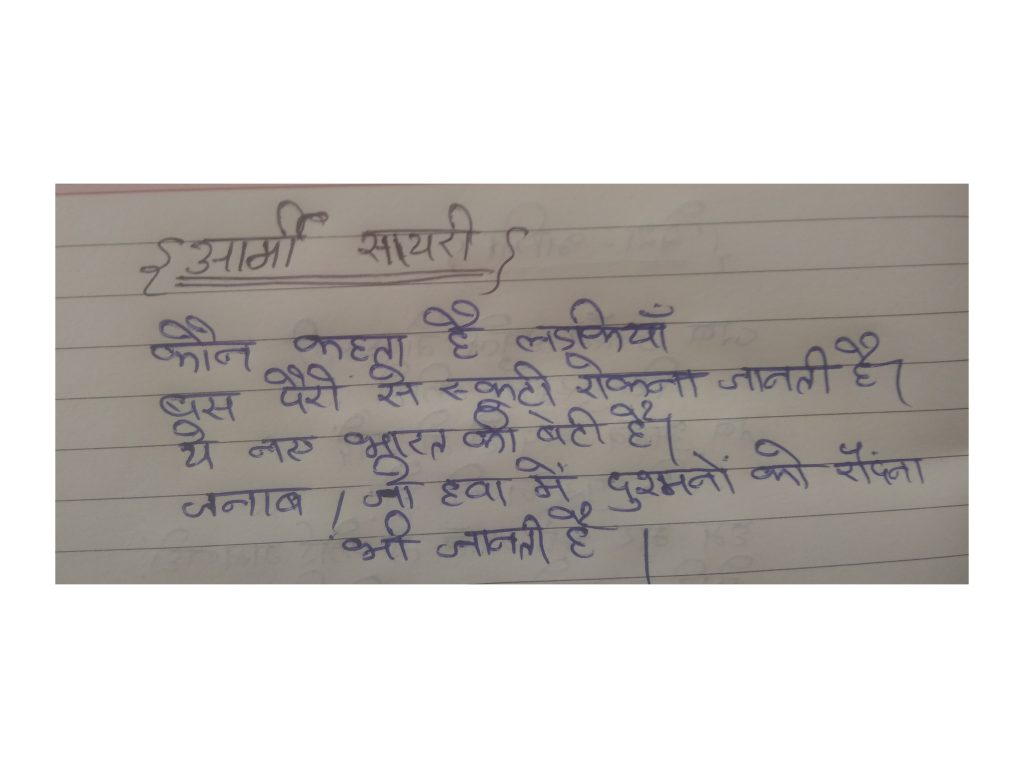 { आर्मी सायरी }
कौन कहता है लडकियाँ
बस पैरो से स्कूटी रोकना जानती है।
ये नए भारत की बेटी है।
जनाब / जो हवा में दुश्मनों को रौंदना
भी जानती है ।